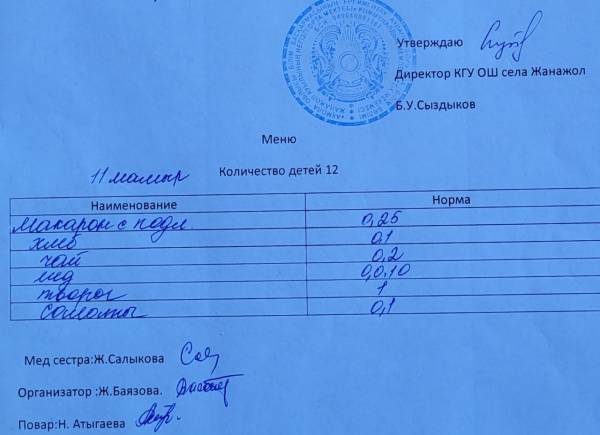 Утверждаю
Директор КГУ ОШ села Жанажол
Б.У.Сыздыков
Меню
11 мамыр Количество детей 12
Наименование Норма
Макарон с подл. 0,25
хлеб 0,1
чай 0,2
мед 0,0,10
творог 1
0,1
Мед сестра:Ж.Салыкова
Организатор :Ж.Баязова.
Повар:Н. Атыгаева